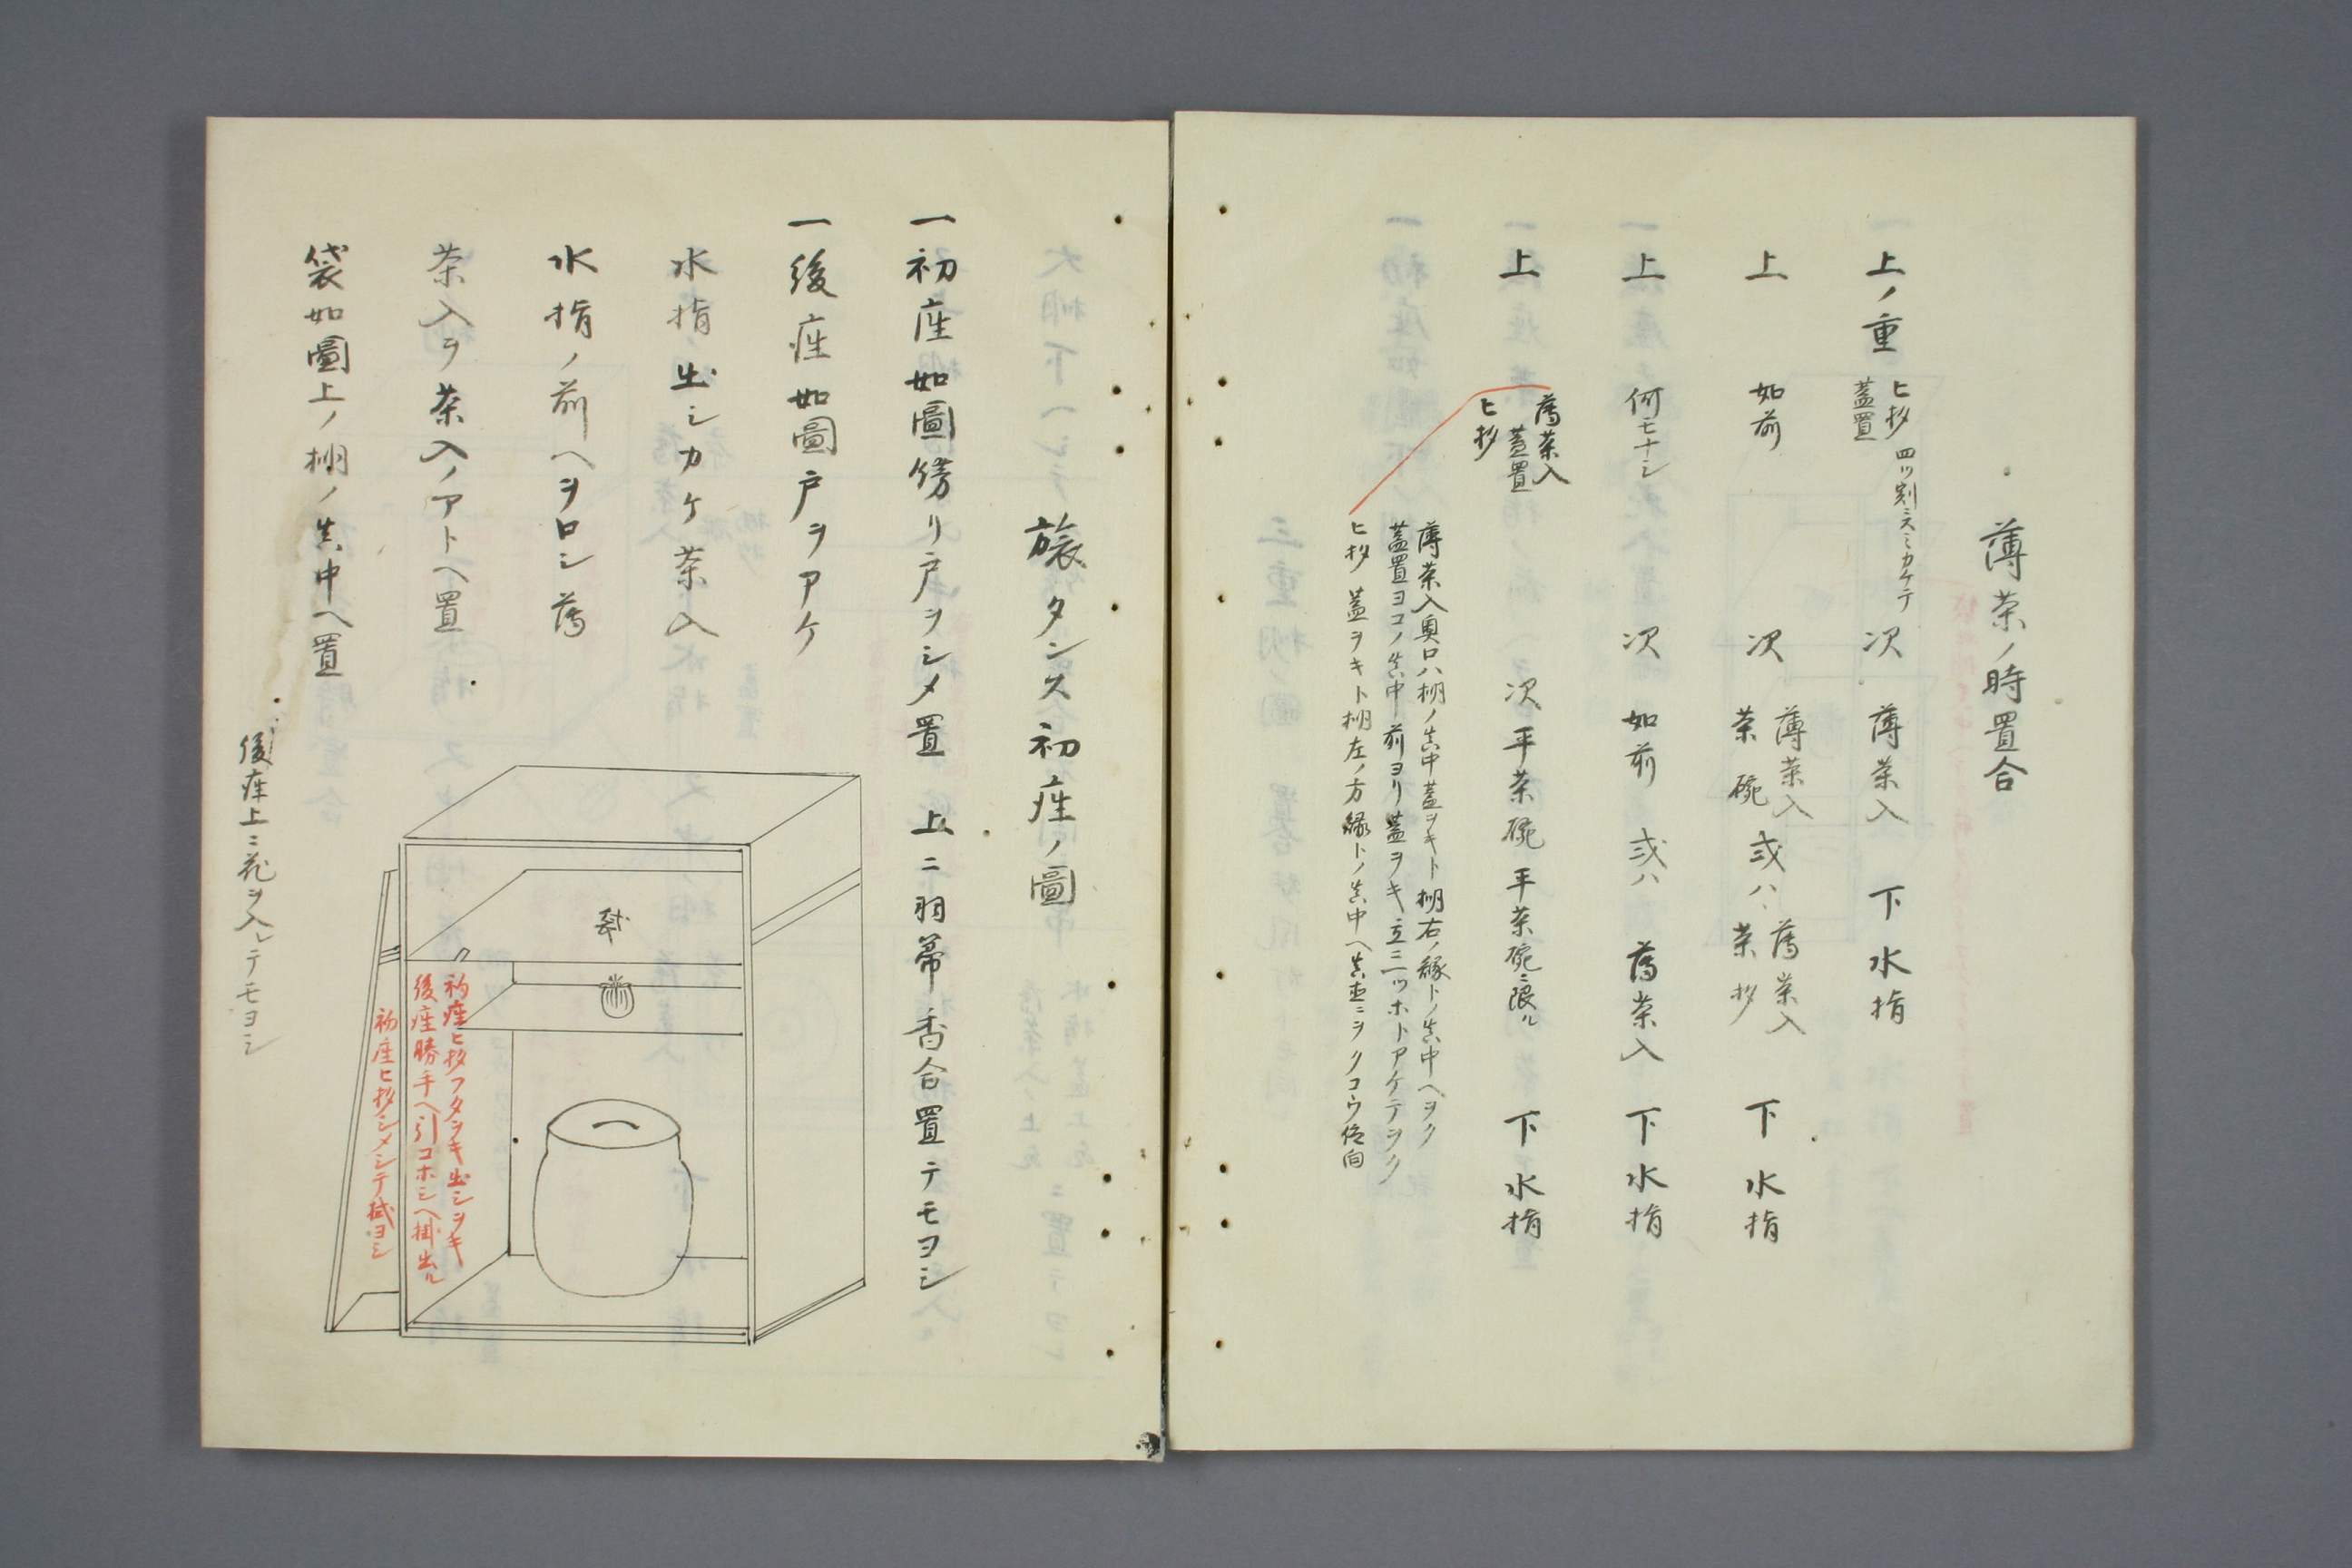 薄茶ノ時置合
上ノ重 ヒ杓 蓋置 四ツ割ニスミカケテ 次 薄茶入 下 水指
上 如前 次 薄茶入 茶碗 或ハ 薄茶入 茶杓 下 水指
上 何モナシ 次 如前 或ハ 薄茶入 下 水指
上 薄茶入 蓋置 ヒ杓 次 平茶碗 平茶碗ニ限ル 下 水指
薄茶入奥口ハ棚ノ真中蓋ヲキト棚右ノ縁トノ真中ヘヲク
蓋置ヨコノ真中前ヨリ蓋ヲキ立三ツホトアケテヲク
ヒ杓蓋ヲキト棚左ノ方縁トノ真中ヘ真直ニヲクコウ仰向
旅タンス初座ノ圖
一初座如圖傍リ戸ヲシメ置 上ニ羽箒香合置テモヨシ
一後座如圖戸ヲアケ
水指出シカケ茶入
水指ノ前ヘヲロシ薄
茶入ヲ茶入ノアトヘ置
袋如圖上ノ棚ノ真中ヘ置
袋
初座ヒ杓フタヲキ出シヲキ
後座勝手ヘ引コホシヘ掛出ル
初座ヒ杓シメシテ拭ヨシ
後座上ニ花ヲ入レテモヨシ